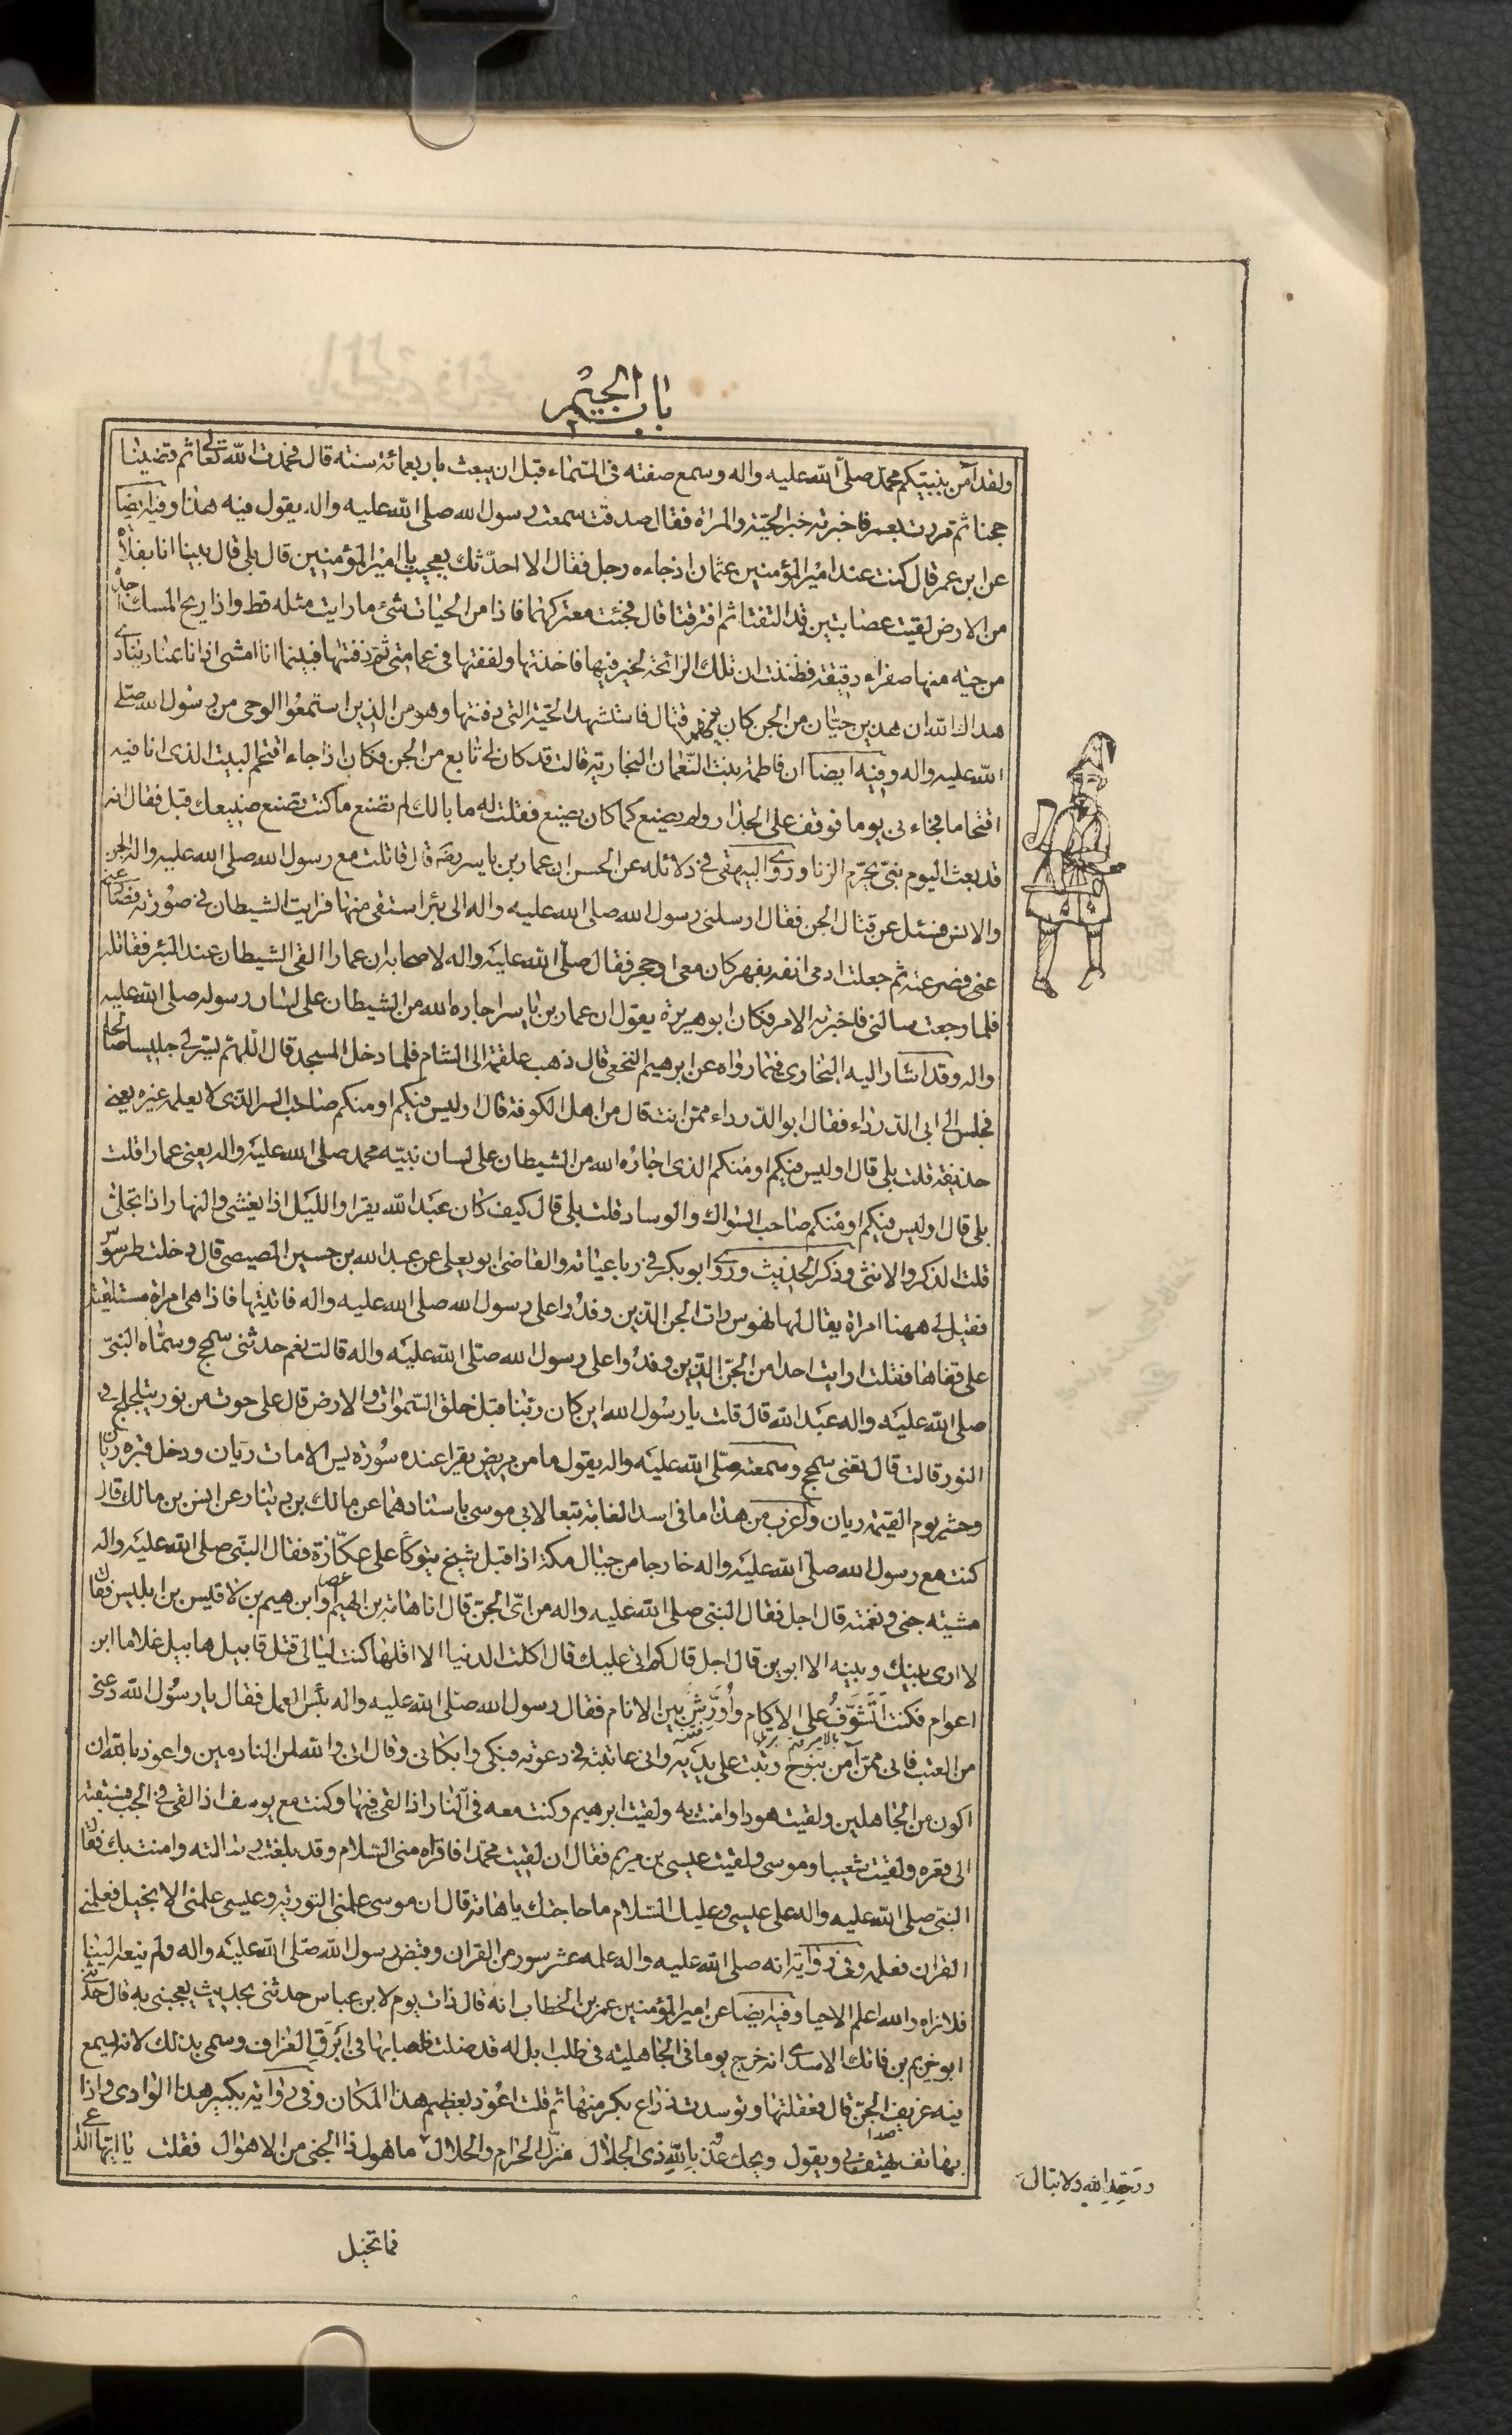 باب الجيم
ولقد آمن بنبيكم محمد صلى الله عليه واله وسمع صفته فى السماء قبل ان يبعث باربعمائة سنة قال فحمدت الله تعالى ثم قضينا
حجنا ثم مررت بعمر فاخبرته خبر الحية والمراة فقال صدقت سمعت رسول الله صلى الله عليه واله يقول فيه هذا وفيه ايضا
عن ابن عمر قال كنت عند امير المؤمنين عثمان اذ جاءه رجل فقال الا احدثك بعجيب يا امير المؤمنين قال بلى قال بينا انا بفلاة
من الارض لقيت عصابتين قد التفتا ثم افترقتا قال فجئت معتركهما فاذا من الحيات شئ ما رايت مثله قط واذا ريح المسك اجده
من حية منها صفراء دقيقة فظننت ان تلك الرائحة لخير فيها فاخذتها ولففتها فى عمامتى ثم دفنتها فبينما انا امشى اذ انا بمناد ينادى
هداك الله ان هذين حيان من الجن كان بينهم قتال فاستشهد الحية التى دفنتها وهو من الذين استمعوا الوحى من رسول الله صلى
الله عليه واله وفيه ايضا ان فاطمة بنت النعمان النجارية قالت قد كان لى تابع من الجن فكان اذا جاء اقتحم البيت الذى انا فيه
اقتحاما فجاء نى يوما فوقف على الجدار ولم يصنع كما كان يصنع فقلت له ما بالك لم تصنع ما كنت تصنع صنيعك قبل فقال انه
قد بعث اليوم نبى يحرم الزنا وروى البيهقى فى دلائله عن الحسن ان عمار بن ياسر رضه قال قاتلت مع رسول الله صلى الله عليه واله الجن
والانس فسئل عن قتال الجن فقال ارسلنى رسول الله صلى الله عليه واله الى بئر استقى منها فرايت الشيطان فى صورته فصارعنى
عنى فصرعته ثم جعلت ادمى انفه بفهر كان معى او حجر فقال صلى الله عليه واله لاصحابه ان عمارا القى الشيطان عند البئر فقاتله
فلما رجعت سالنى فاخبرته الامر فكان ابو هريرة يقول ان عمار بن ياسر اجاره الله من الشيطان على لسان رسوله صلى الله عليه
واله وقد اشار اليه البخارى فيما رواه عن ابرهيم النخعى قال ذهب علقمة الى الشام فلما دخل المسجد قال اللهم يسر لى جليسا صالحا
فجلس الى ابى الدرداء فقال ابو الدرداء ممن انت قال من اهل الكوفة قال اوليس فيكم او منكم صاحب السر الذى لا يعلمه غيره يعنى
حذيفة قلت بلى قال اوليس فيكم او منكم الذى اجاره الله من الشيطان على لسان نبيه محمد صلى الله عليه واله يعنى عمارا قلت
بلى قال اوليس فيكم او منكم صاحب السواك والوساد قلت بلى قال كيف كان عبد الله يقرا والليل اذا يغشى والنهار اذا تجلى
قلت الذكر والانثى وذكر الحديث وروى ابو بكر فى رباعياته والقاضى ابو يعلى عن عبد الله بن حسين المصيصى قال دخلت طرسوس
فقيل لى ههنا امراة يقال لها نهوس رات الجن الذين وفدوا على رسول الله صلى الله عليه واله فاتيتها فاذا هى امراة مستلقية
على قفاها فقلت ارايت احدا من الجن الذين وفدوا على رسول الله صلى الله عليه واله قالت نعم حدثنى سمحج وسماه النبى
صلى الله عليه واله عبد الله قال قلت يا رسول الله اين كان ربنا قبل خلق السموات والارض قال على حوت من نور يتلجلج فى
النور قالت قال تعنى سمحج وسمعته صلى الله عليه واله يقول ما من مريض يقرا عنده سورة يس الا مات ريان ودخل قبره ريانا
وحشر يوم القيمة ريان واغرب من هذا ما فى اسد الغابة تبعا لابى موسى باسنادهما عن مالك بن دينار عن انس بن مالك قال
كنت مع رسول الله صلى الله عليه واله خارجا من جبال مكة اذ اقبل شيخ يتوكأ على عكازة فقال النبى صلى الله عليه واله
مشية جنى ونغمته قال اجل فقال النبى صلى الله عليه واله من اى الجن قال انا هامة بن الهيم او ابن هيم بن لاقيس بن ابليس فقال
لا ارى بينك وبينه الا ابوين قال اجل قال كم اتى عليك قال اكلت الدنيا الا اقلها كنت ليالى قتل قابيل هابيل غلاما ابن
اعوام فكنت اتشوف على الاكام وأورش بين الانام فقال رسول الله صلى الله عليه واله بئس العمل فقال يا رسول الله دعنى
من العتب فانى ممن آمن بنوح وتبت على يديه وانى عاتبته فى دعوته فبكى وابكانى وقال انى والله لمن النادمين واعوذ بالله ان
اكون من الجاهلين ولقيت هودا وامنت به ولقيت ابرهيم وكنت معه فى النار اذ القى فيها وكنت مع يوسف اذ القى فى الجب فسبقته
الى قعره ولقيت شعيبا وموسى ولقيت عيسى بن مريم فقال ان لقيت محمدا فاقراه منى السلام وقد بلغت رسالته وامنت بك فقال
النبى صلى الله عليه واله على عيسى وعليك السلام ما حاجتك يا هامة قال ان موسى علمنى التورية وعيسى علمنى الانجيل فعلمنى
القران فعلمه وفى رواية انه صلى الله عليه واله علمه عشر سور من القران وقبض رسول الله صلى الله عليه واله ولم ينعه الينا
فلا نراه والله اعلم الا حيا وفيه ايضا عن امير المؤمنين عمر بن الخطاب انه قال ذات يوم لابن عباس حدثنى بحديث يعجبنى به قال حدثنى
ابو خريم بن فاتك الاسدى انه خرج يوما فى الجاهلية فى طلب ابل له قد ضلت فاصابها فى ابرق العزاف وسمى بذلك لانه يسمع
فيه عزيف الجن قال فعقلتها وتوسدت ذراع بكر منها ثم قلت اعوذ بعظيم هذا المكان وفى رواية بكبير هذا الوادى واذا
بهاتف يهتف بى ويقول ويحك عذ بالله ذى الجلال منزل الحرام والحلال ما هول ذا الجنى من الاهوال فقلت يا ايها الداعى
ووحد الله ولا تبال
فما تخيل